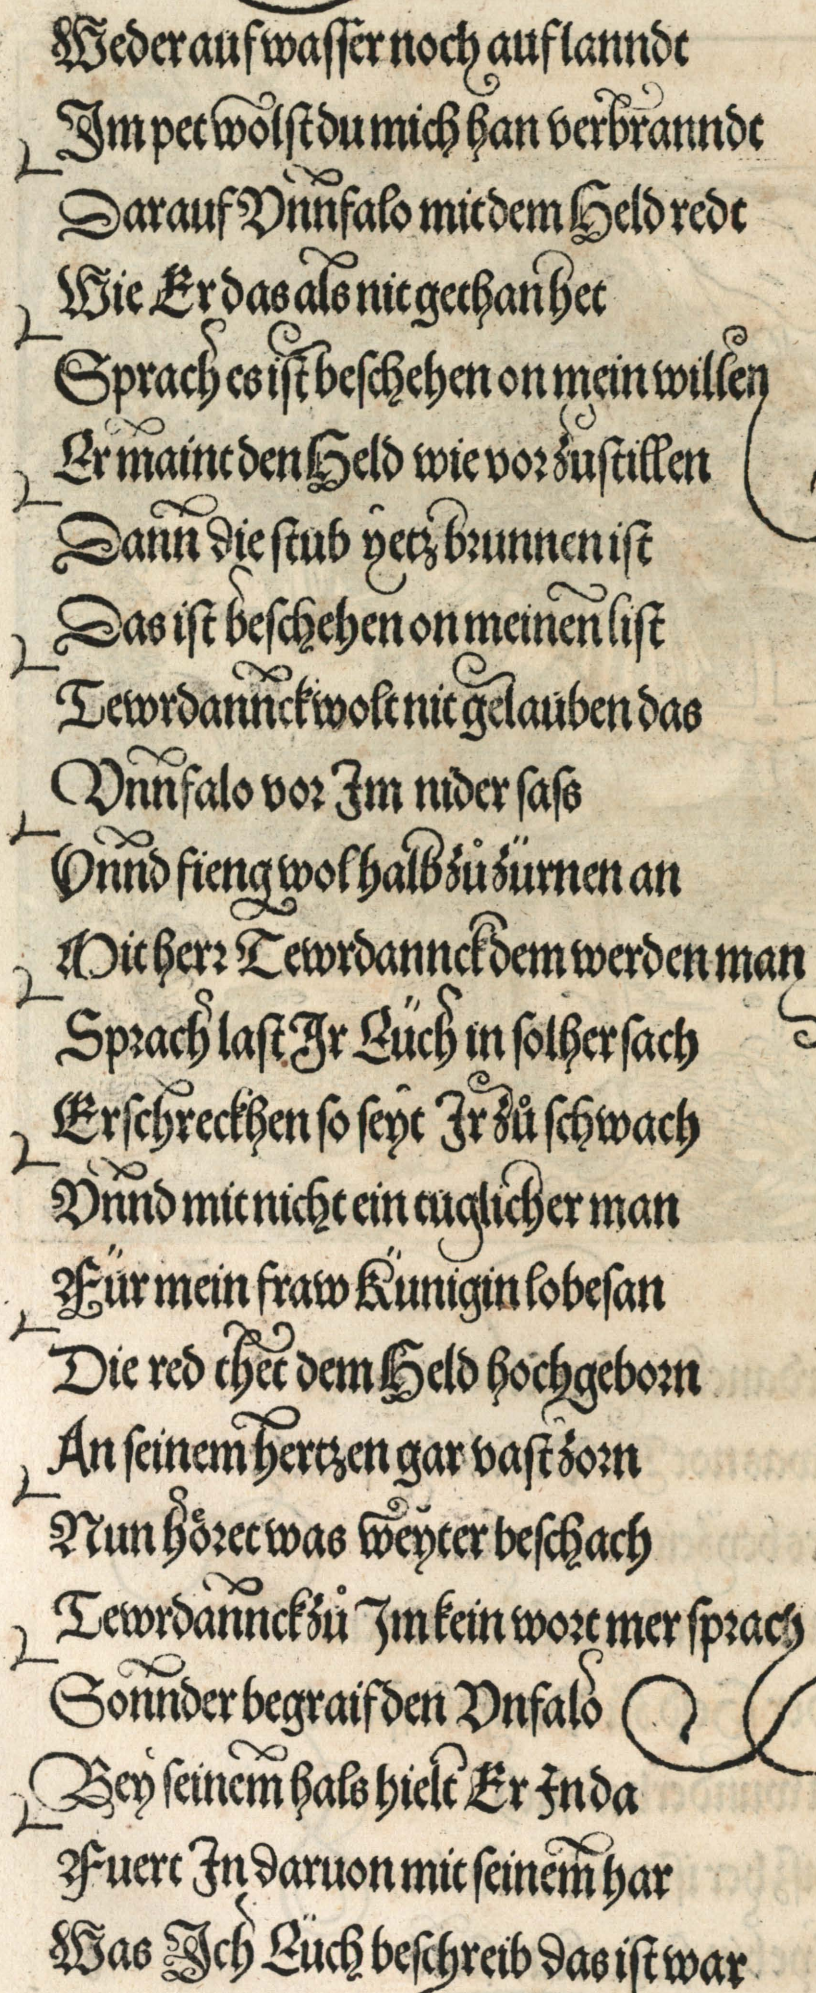 Weder auf wasser noch auf lanndt
Im pet wolst du mich han verbranndt
Darauf Vnnfalo mit dem Held redt
Wie Er das als nit gethan het
Sprach es ist beschehen on mein willen
Er maint den Held wie vor zustillen
Dann die stub yetz brunnen ist
Das ist beschehen on meinen list
Tewrdannck wolt nit gelauben das
Vnnfalo vor Im nider sass
Vnnd fieng wol halb zů zürnen an
Mit herr Tewrdannck dem werden man
Sprach last Ir Eüch in solher sach
Erschreckhen so seyt Ir zů schwach
Vnnd mit nicht ein tuglicher man
Für mein fraw Künigin lobesan
Die red thet dem Held hochgeborn
An seinem hertzen gar vast zorn
Nun höret was weyter beschach
Tewrdannck zů Im kein wort mer sprach
Sonnder begraif den Vnfalo
Bey seinem hals hielt Er In da
Fuert In daruon mit seinem har
Was Ich Eüch beschreib das ist war